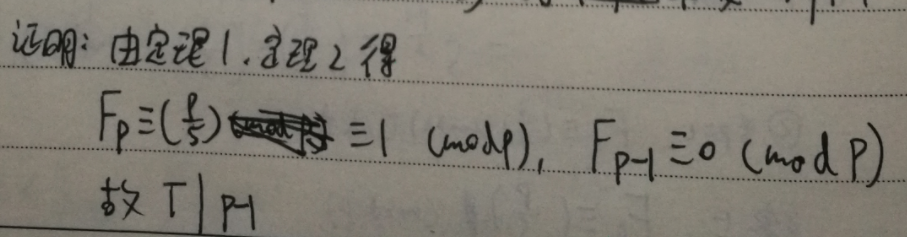 证明: 由定理1.定理2得
F_p≡(p/5)≡1 (mod p), F_{p-1}≡0 (mod p)
故 T | p-1